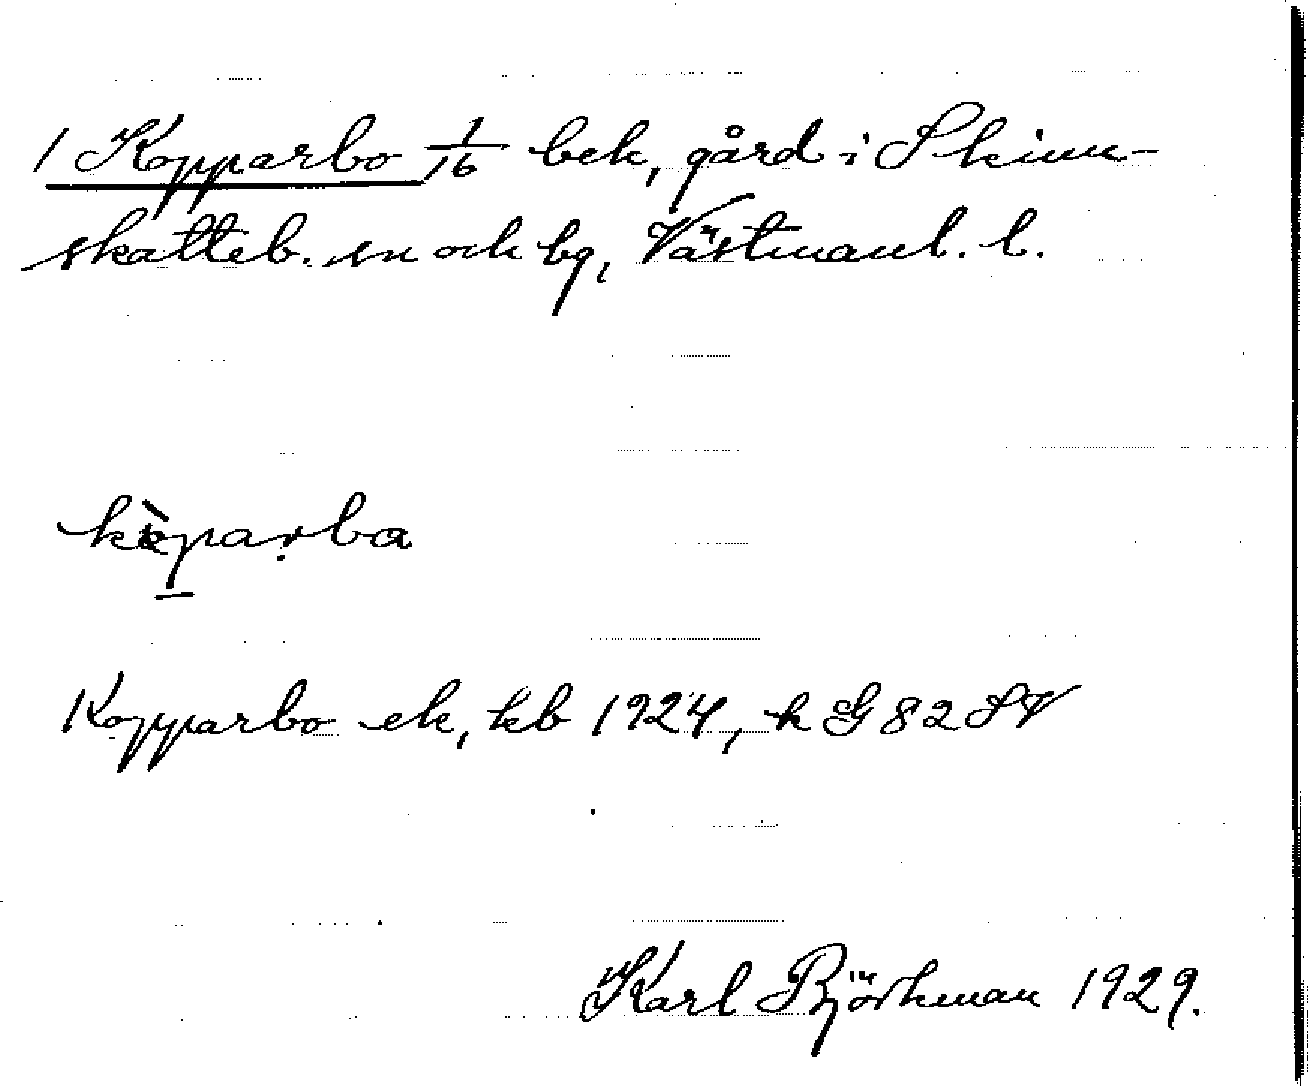 1 Kopparbo 1/16 bek, gård i Skinn-
skatteb. sn och bg, Västmanl. l.
Kopparbo ek, kb 1924, k G 82 SV
Karl Björkman 1929.